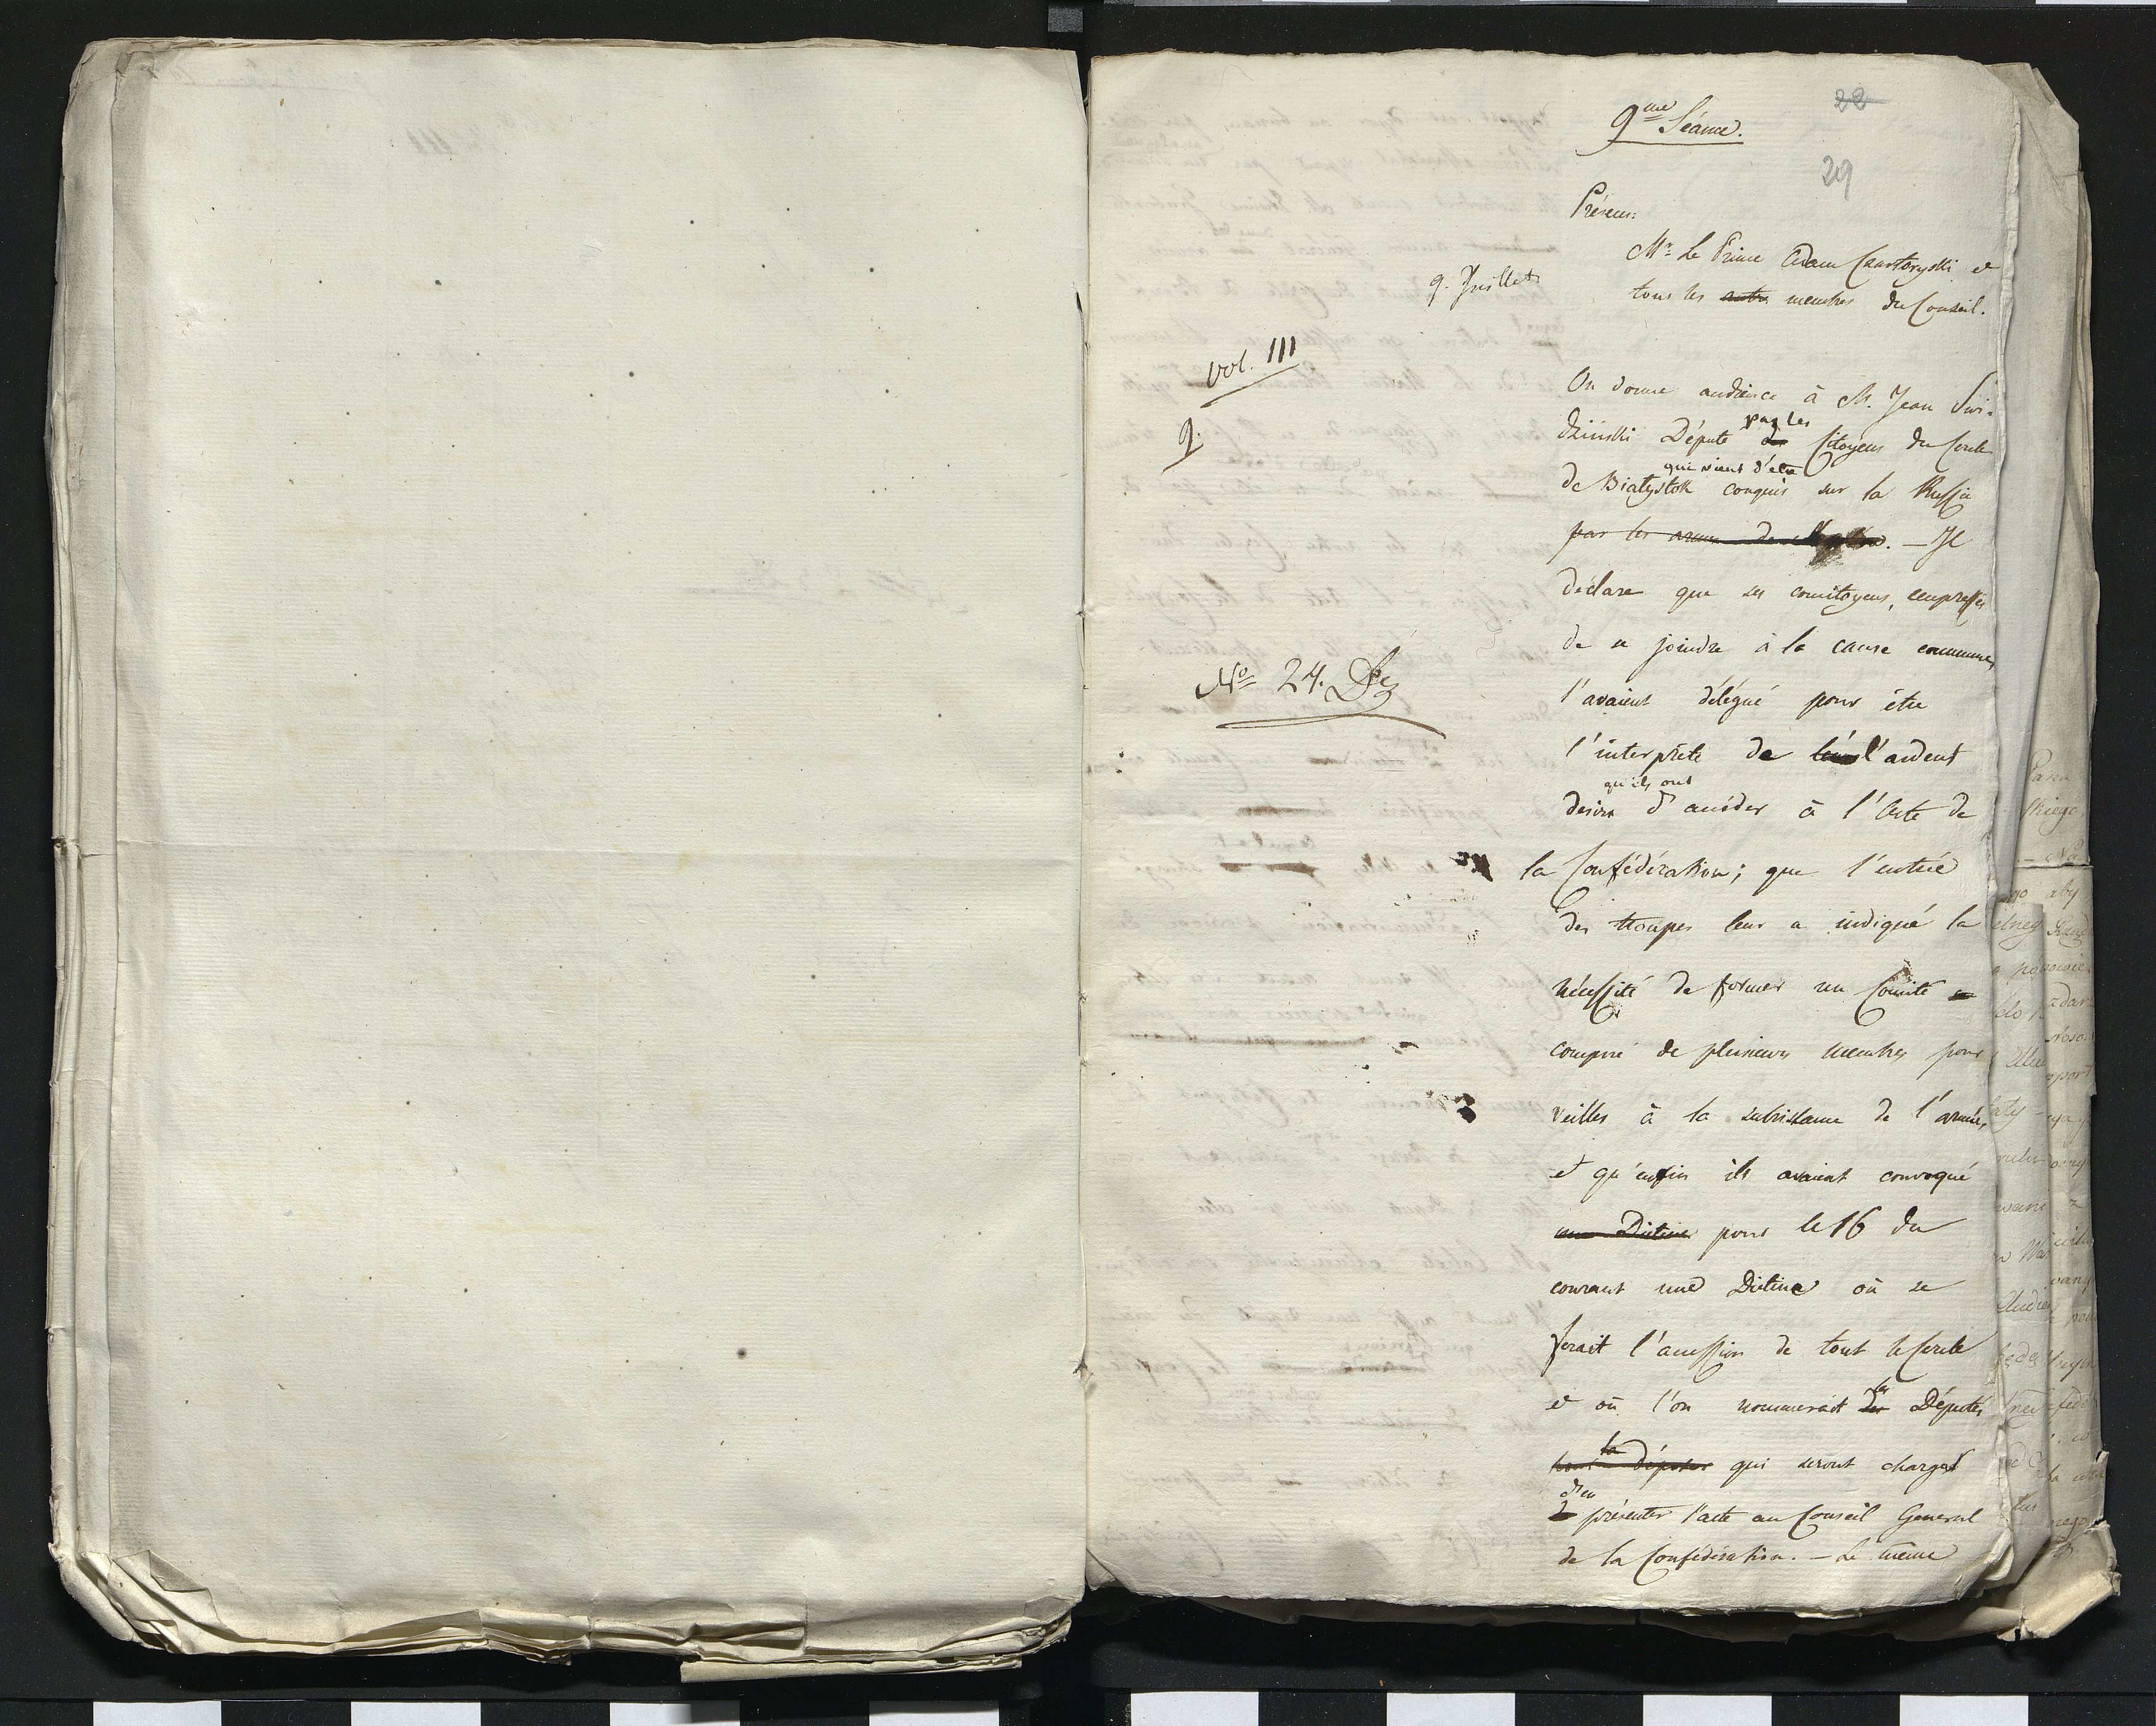 22
9me Séance.
29
Présens:
9. Juillet
Mr. Le Prince Adam Czartoryski et
tous les autres membres du Conseil.
vol. III
9.
On donne audience à M. Jean Swi-
dziński Député des par les Citoyens du Cercle
de Białystok qui vient d'etre conquis sur la Russie
par les armes de . – Il
déclare que ses concitoyens, empressés
de se joindre à la cause commune,
No 24. Dz
l'avaient délégué pour être
l'interprète de leur l'ardent
desir qu'ils ont d'accéder à l'Acte de
la Confédération; que l'entrée
des troupes leur a indiqué la
nécessité de former un Comité
composé de plusieurs membres pour
veiller à la subsistance de l'armée,
et qu'enfin ils avaient convoqué
une Diétine pour le 16 du
courant une Diétine où se
ferait l'accession de tout le Cercle
et où l'on nommerait des les Députés
la députer qui seront chargés
de d'en présenter l'acte au Conseil General
de la Confédération. – Le même